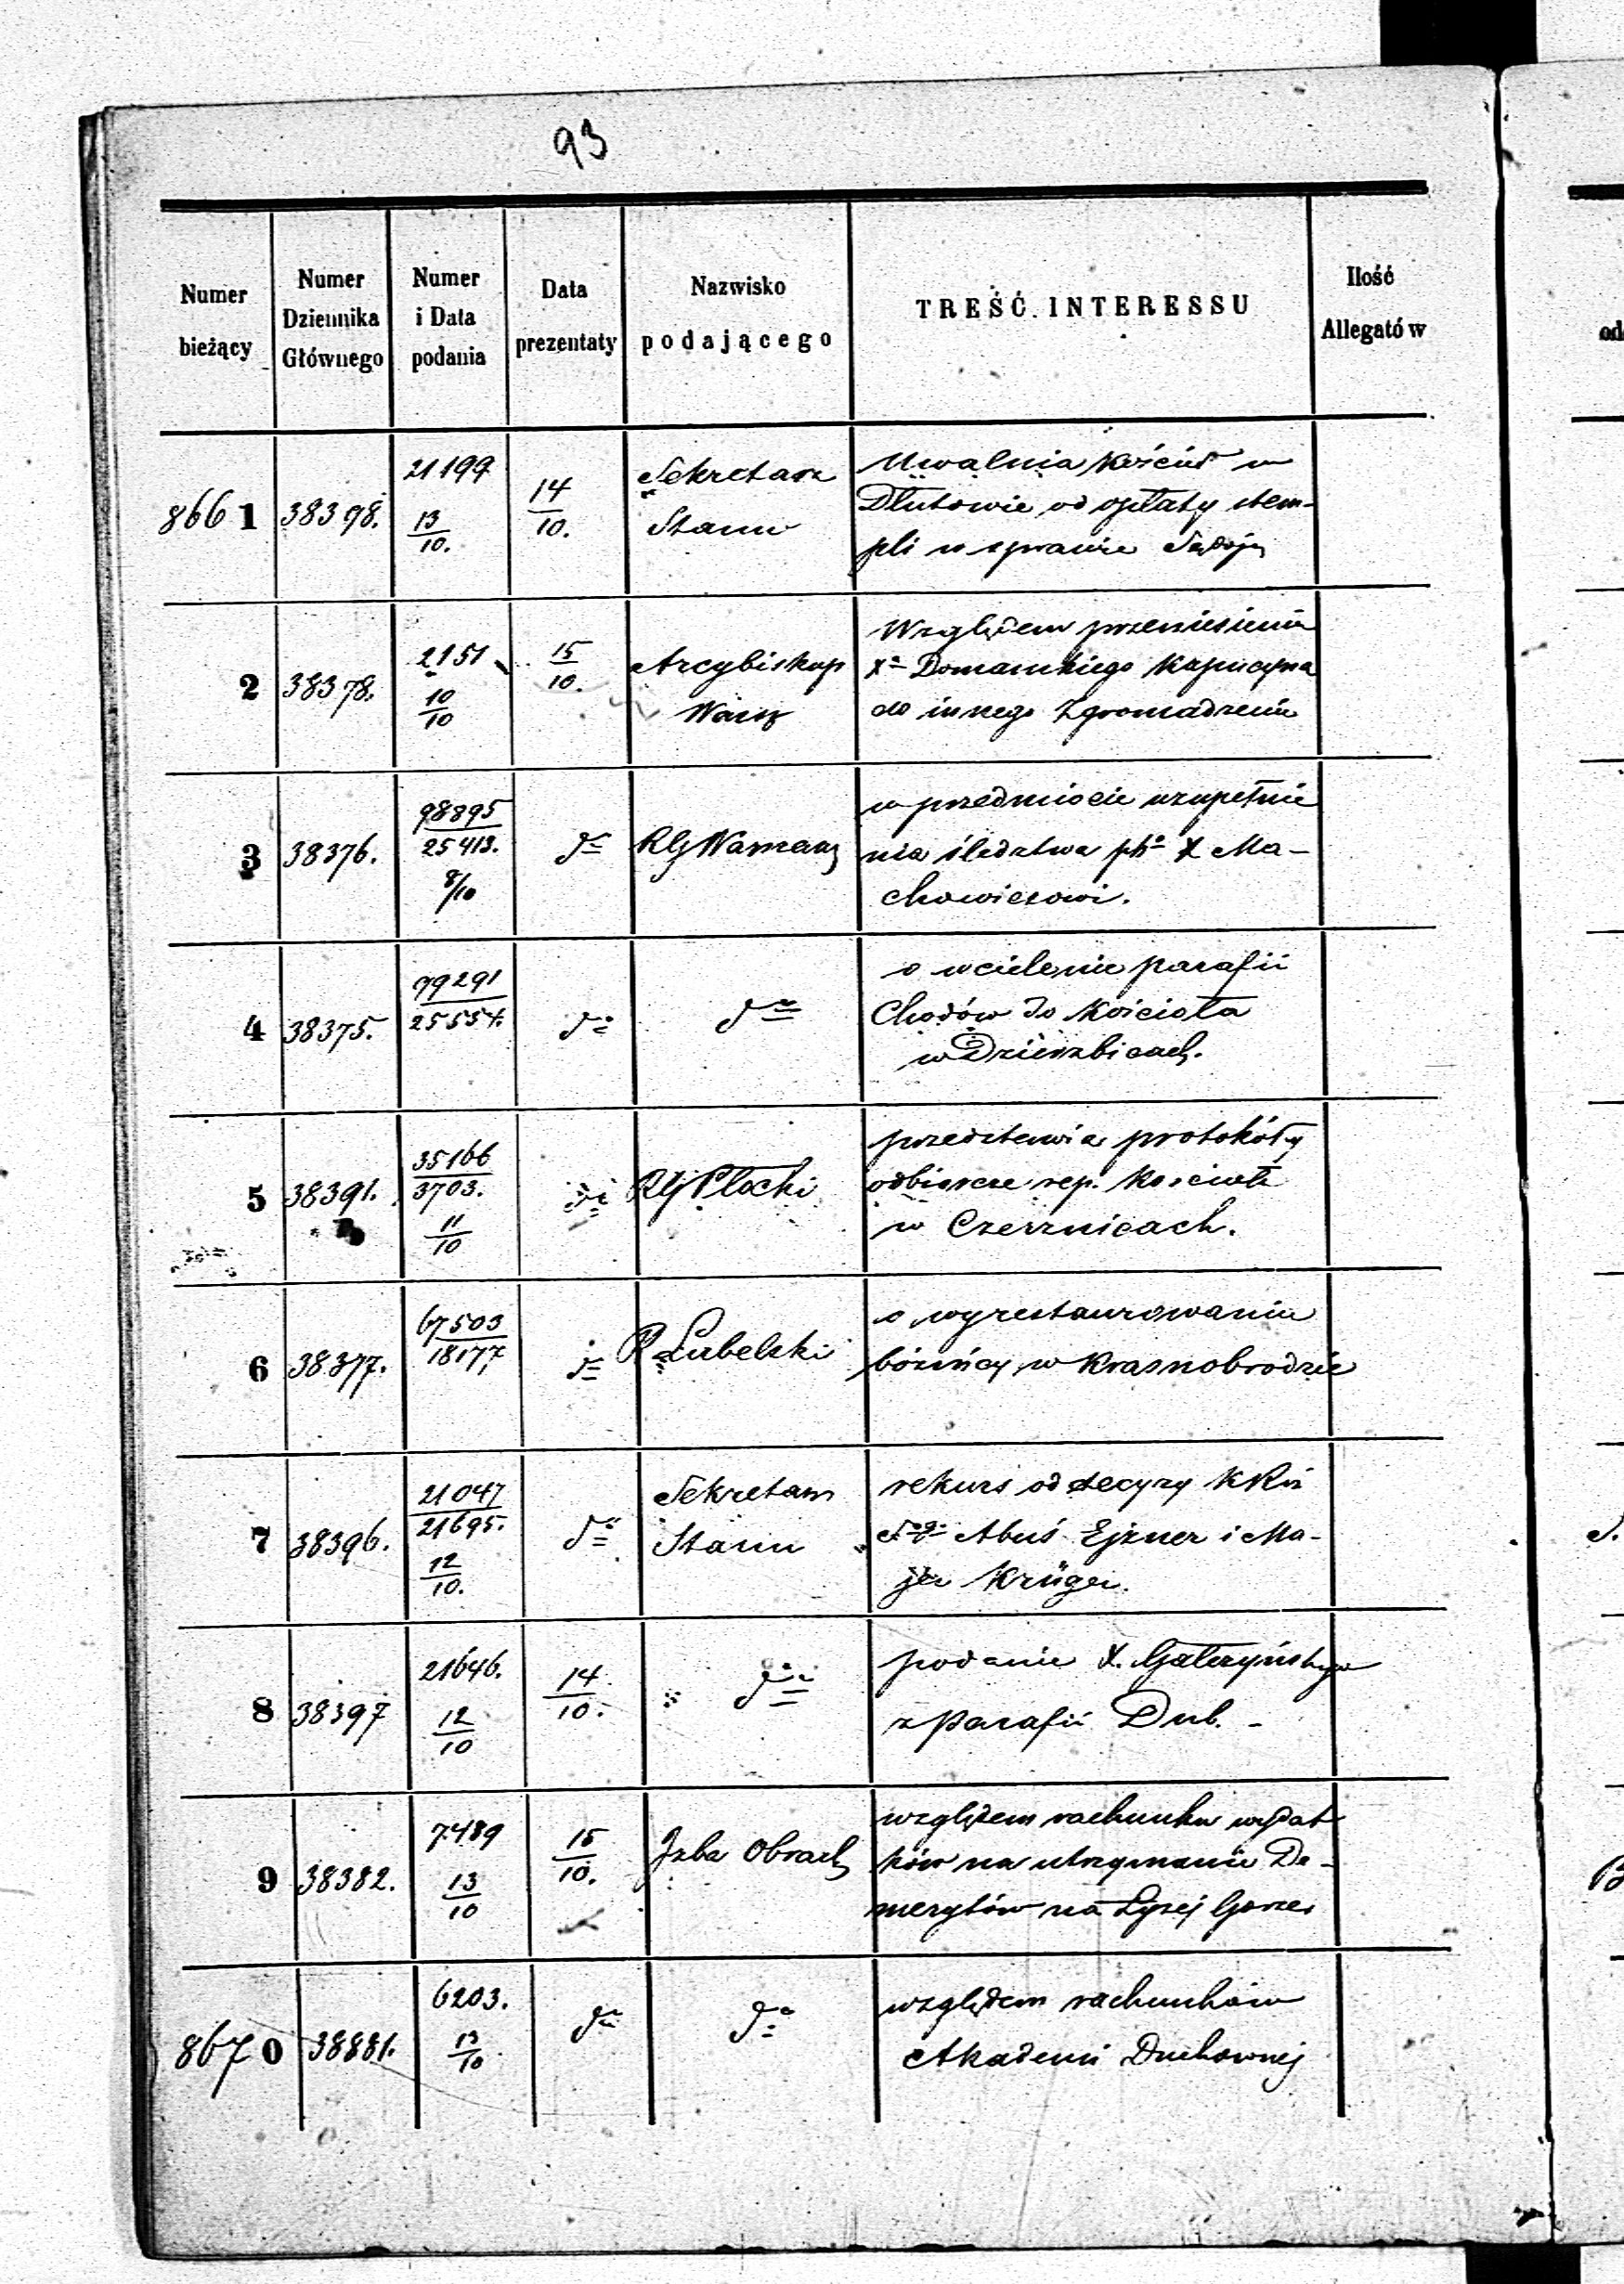 93
Numer bieżący | Numer Dziennika Głównego | Numer i Data podania | Data prezentaty | Nazwisko podającego | TREŚĆ INTERESSU | Ilość Allegatów
8661 | 38398. | 21199 13/10. | 14/10. | Sekretarz Stanu | Uwalnia Kościół w
Dłutowie od opłaty stem-
pli w sprawie
2 | 38378. | 2151 10/10 | 15/10. | Arcybiskup Warsz | Względem przeniesienia
Xa Domanskiego Kapucyna
do innego Zgromadzenia
3 | 38376. | 98895/25413. 8/10 | do | RG Warszaw | w przedmiocie uzupełnie
nia śledztwa pko X Ma-
chowiczowi.
4 | 38375. | 99291/25554. | do | do | o wcielenie parafii
Chodów do Kościoła
w Dzierzbicach.
5 | 38391. | 35166/3703. 11/10 | do | RG Płocki | przedstawia protokóły
odbiorcze rep. Kościoła
w Czernicach.
6 | 38377. | 67503/18177 | do | R Lubelski | o wyrestaurowanie
bóżnicy w Krasnobrodzie
7 | 38396. | 21047/21695. 12/10. | do | Sekretarz Stanu | rekurs od decyzy
Abuś Ejzner i Ma-
jer Krüger.
8 | 38397 | 21646. 12/10 | 14/10. | do | podanie X. Gałczyńskiego
z parafii Dub. -
9 | 38382. | 7489 13/10 | 15/10. | Izba Obrach | względem rachunku wydat
ków na utrzymanie De-
merytów na Łysej Gorze
8670 | 38381. | 6203. 13/10 | do | do | względem rachunków
Akademii Duchownej